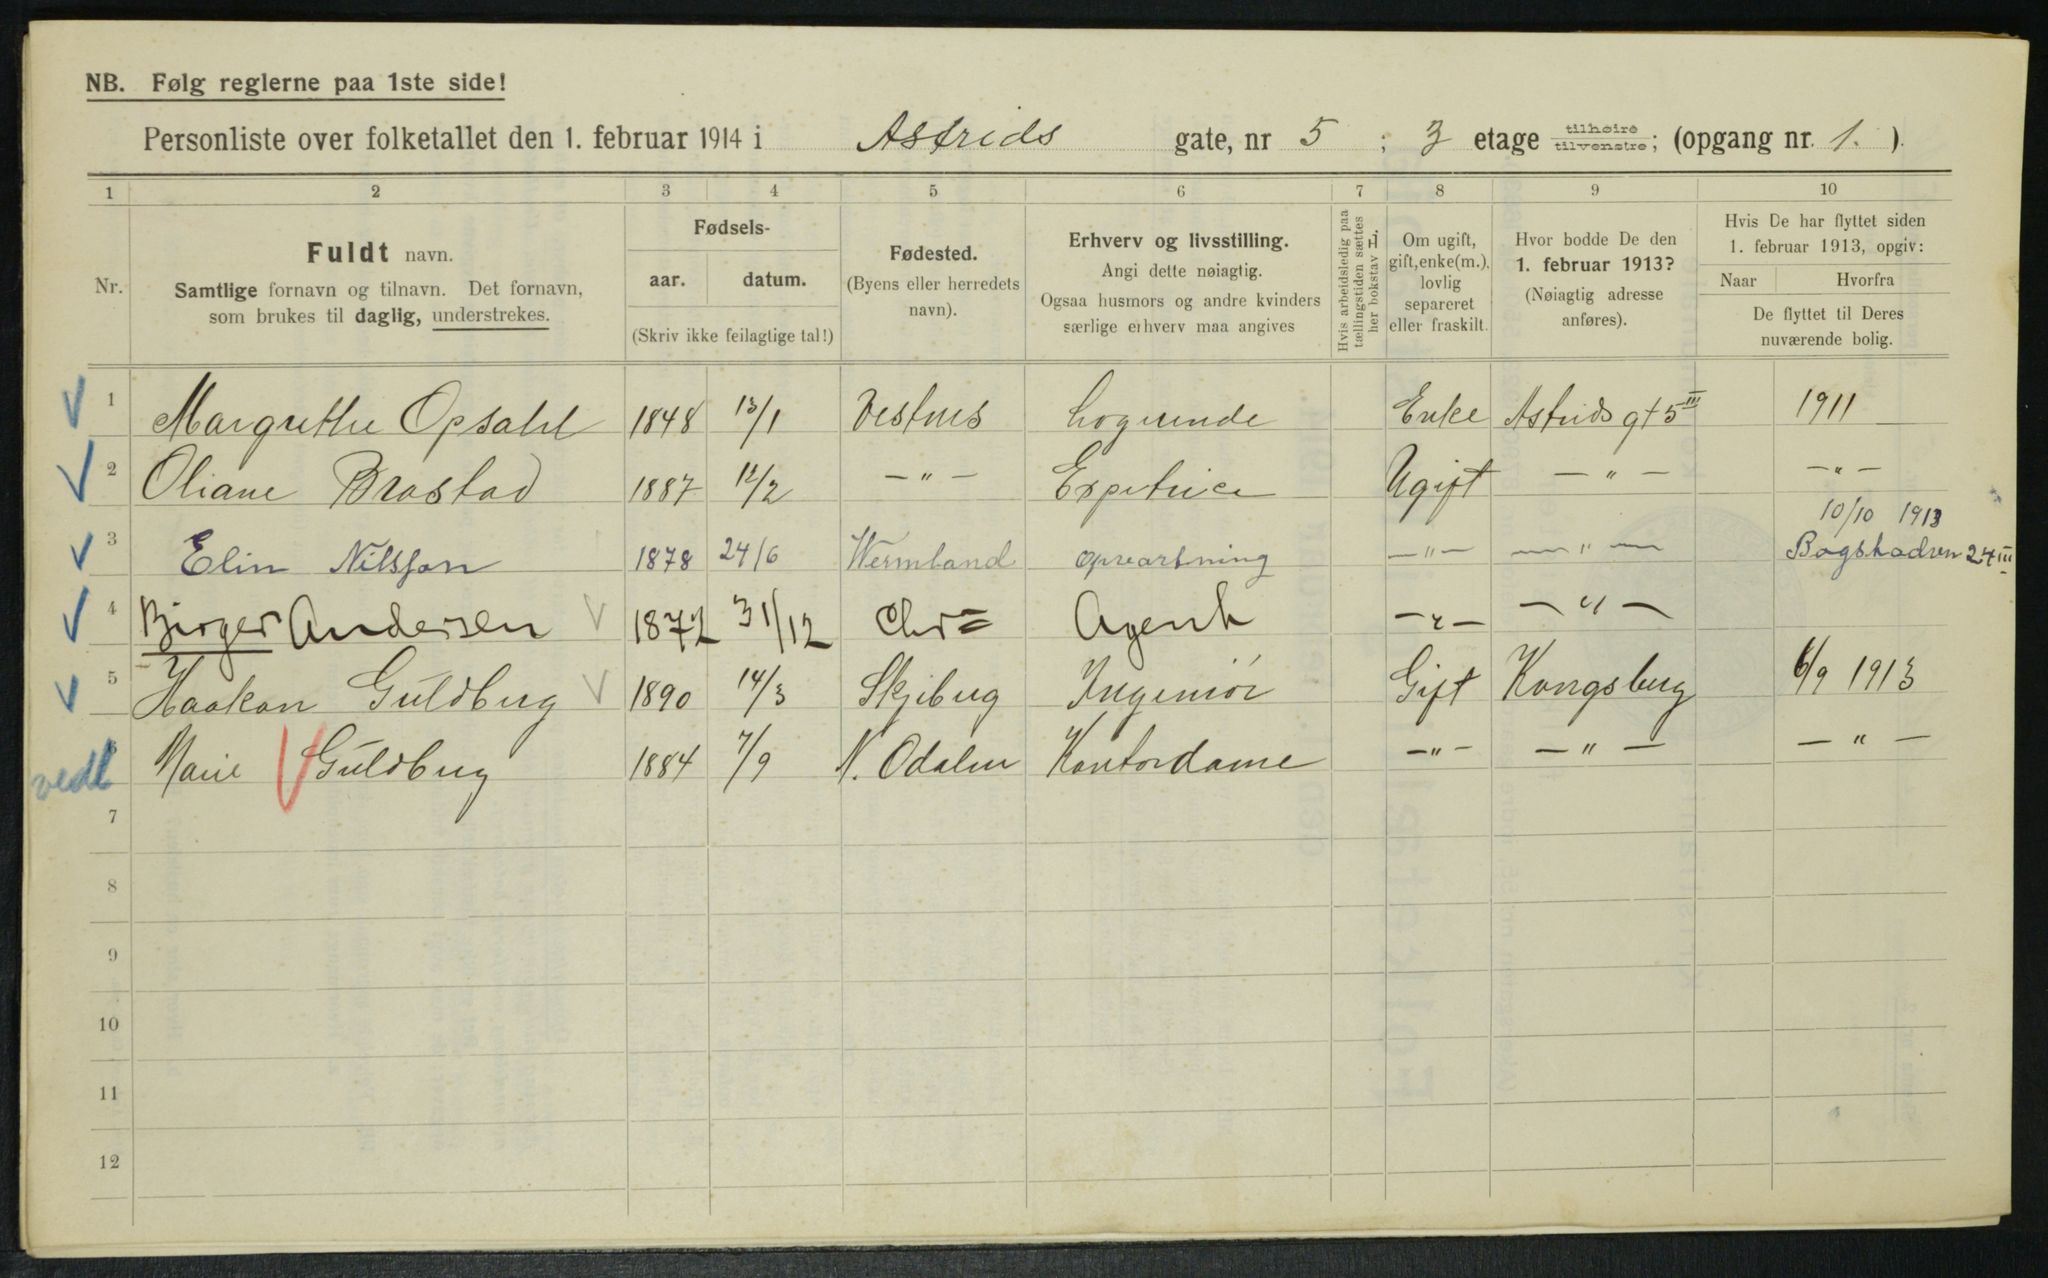 NB. Følg reglerne paa 1ste side!
Personliste over folketallet den 1. februar 1914 i Astrids gate, nr 5 ; 3 etage tilhøire tilvenstre; (opgang nr. 1. ).
1 2 3 4 5 6 7 8 9 10
Nr.
Fuldt navn.
Samtlige fornavn og tilnavn. Det fornavn,
som brukes til daglig, understrekes.
Fødsels-
aar. datum.
(Skriv ikke feilagtige tal!)
Fødested.
(Byens eller herredets
navn).
Erhverv og livsstilling.
Angi dette nøiagtig.
Ogsaa husmors og andre kvinders
særlige erhverv maa angives
Hvis arbeidsledig paa
tællingstiden sættes
her bokstav L.
Om ugift,
gift, enke(m.),
lovlig
separeret
eller fraskilt.
Hvor bodde De den
1. februar 1913?
(Nøiagtig adresse
anføres).
Hvis De har flyttet siden
1. februar 1913, opgiv:
Naar Hvorfra
De flyttet til Deres
nuværende bolig.
1 Margrethe Opsahl 1848 13/1 Vestnes Logerende Enke Astrids gt 5 III 1911
2 Oliane Brastad 1887 12/2 — " — Expetrice Ugift — " — — " —
10/10 1913
3 Elin Nilsson 1878 24/6 Wermland opvartning — " — — " — Bogstadven 24 III
4 Birger Andersen 1872 31/12 Chr= Agent — " — — " —
5 Haakon Guldberg 1890 14/3 Skjeberg Ingeniør Gift Kongsberg 6/9 1913
6 Marie Guldberg 1884 7/9 N. Odalen Kontordame — " — — " — — " —
7
8
9
10
11
12